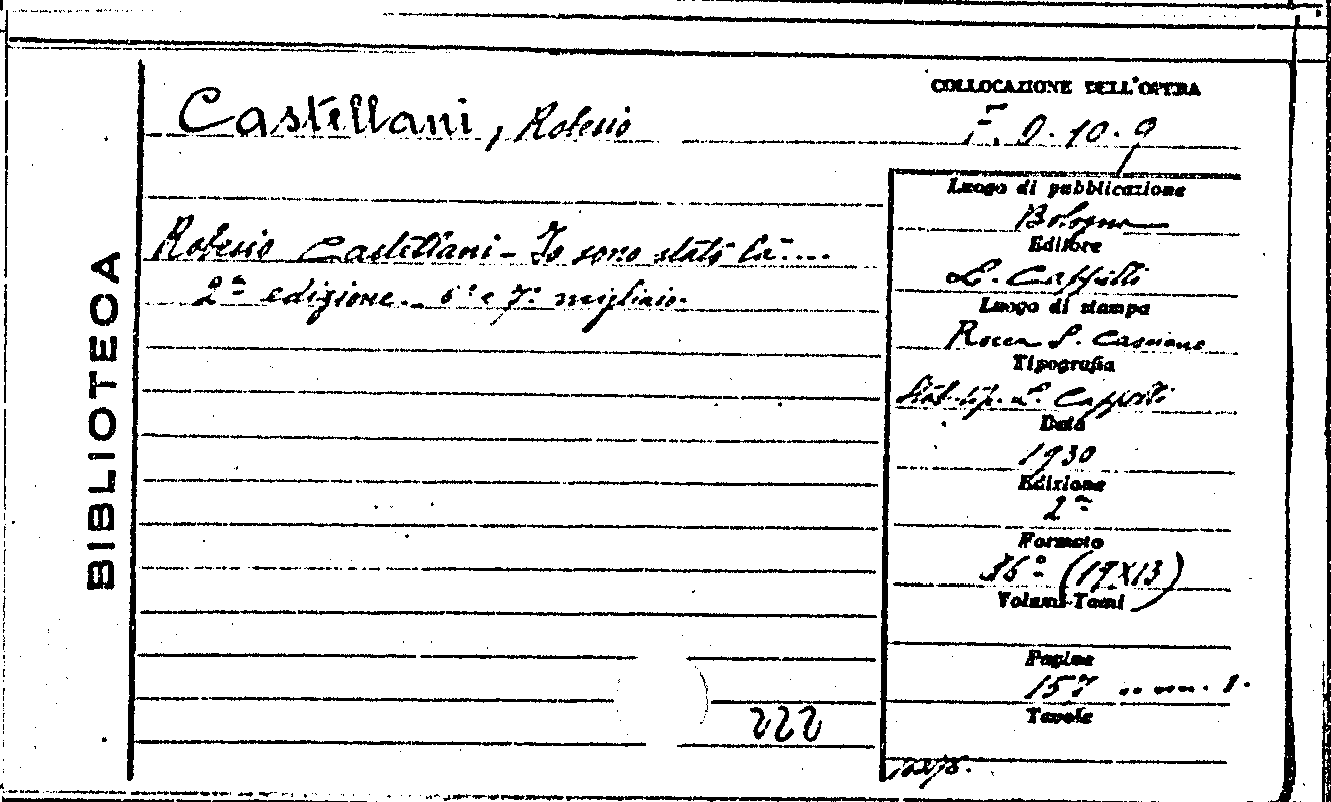 BIBLIOTECA
COLLOCAZIONE DELL'OPERA
Castellani, Robesio
0.10.9
Robesio Castellani - Io sono stato là....
2ª edizione. 6° e 7° migliaio.
Luogo di pubblicazione
Bologna
Editore
L. Cappelli
Luogo di stampa
Rocca S. Casciano
Tipografia
Stab. tip. L. Cappelli
Data
1930
Edizione
2ª
Formato
(19X13)
Volumi-Tomi
Pagine
157
Tavole
222